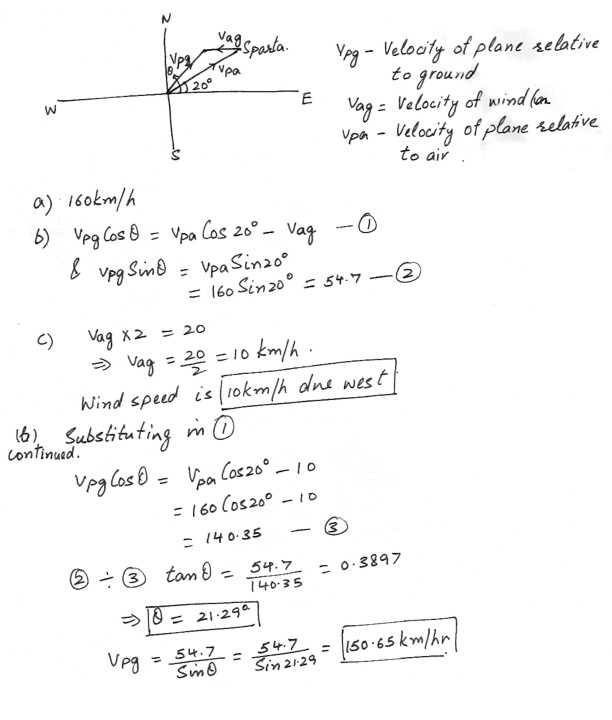 N
Vag Sparta.
Vpg
θ Vpa
20°
W E
S
Vpg - Velocity of plane relative
to ground
Vag = Velocity of wind/air
Vpa - Velocity of plane relative
to air.
a) 160km/h
b) Vpg Cos θ = Vpa Cos 20° - Vag — ①
& Vpg Sin θ = Vpa Sin 20°
= 160 Sin 20° = 54.7 — ②
c) Vag x 2 = 20
⇒ Vag = 20/2 = 10 km/h.
Wind speed is 10km/h due west
(b) Substituting in ①
continued.
Vpg Cos θ = Vpa Cos 20° - 10
= 160 Cos 20° - 10
= 140.35 — ③
② ÷ ③ tan θ = 54.7/140.35 = 0.3897
⇒ θ = 21.29°
Vpg = 54.7/Sin θ = 54.7/Sin 21.29 = 150.65 km/hr